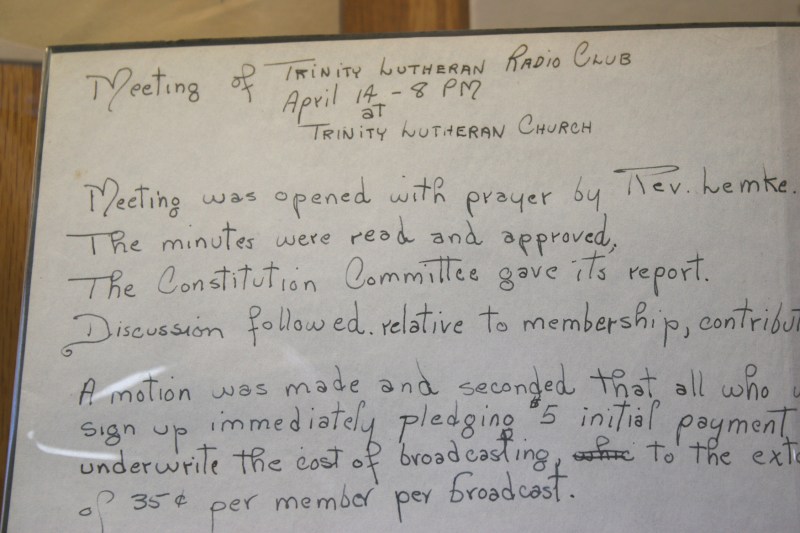 Meeting of TRINITY LUTHERAN RADIO CLUB
April 14 - 8 PM
at
TRINITY LUTHERAN CHURCH
Meeting was opened with prayer by Rev. Lemke.
The minutes were read and approved,
The Constitution Committee gave its report.
Discussion followed. relative to membership, contribut
A motion was made and seconded that all who
sign up immediately pledging $5 initial payment
underwrite the cost of broadcasting, to the exte
of 35¢ per member per broadcast.